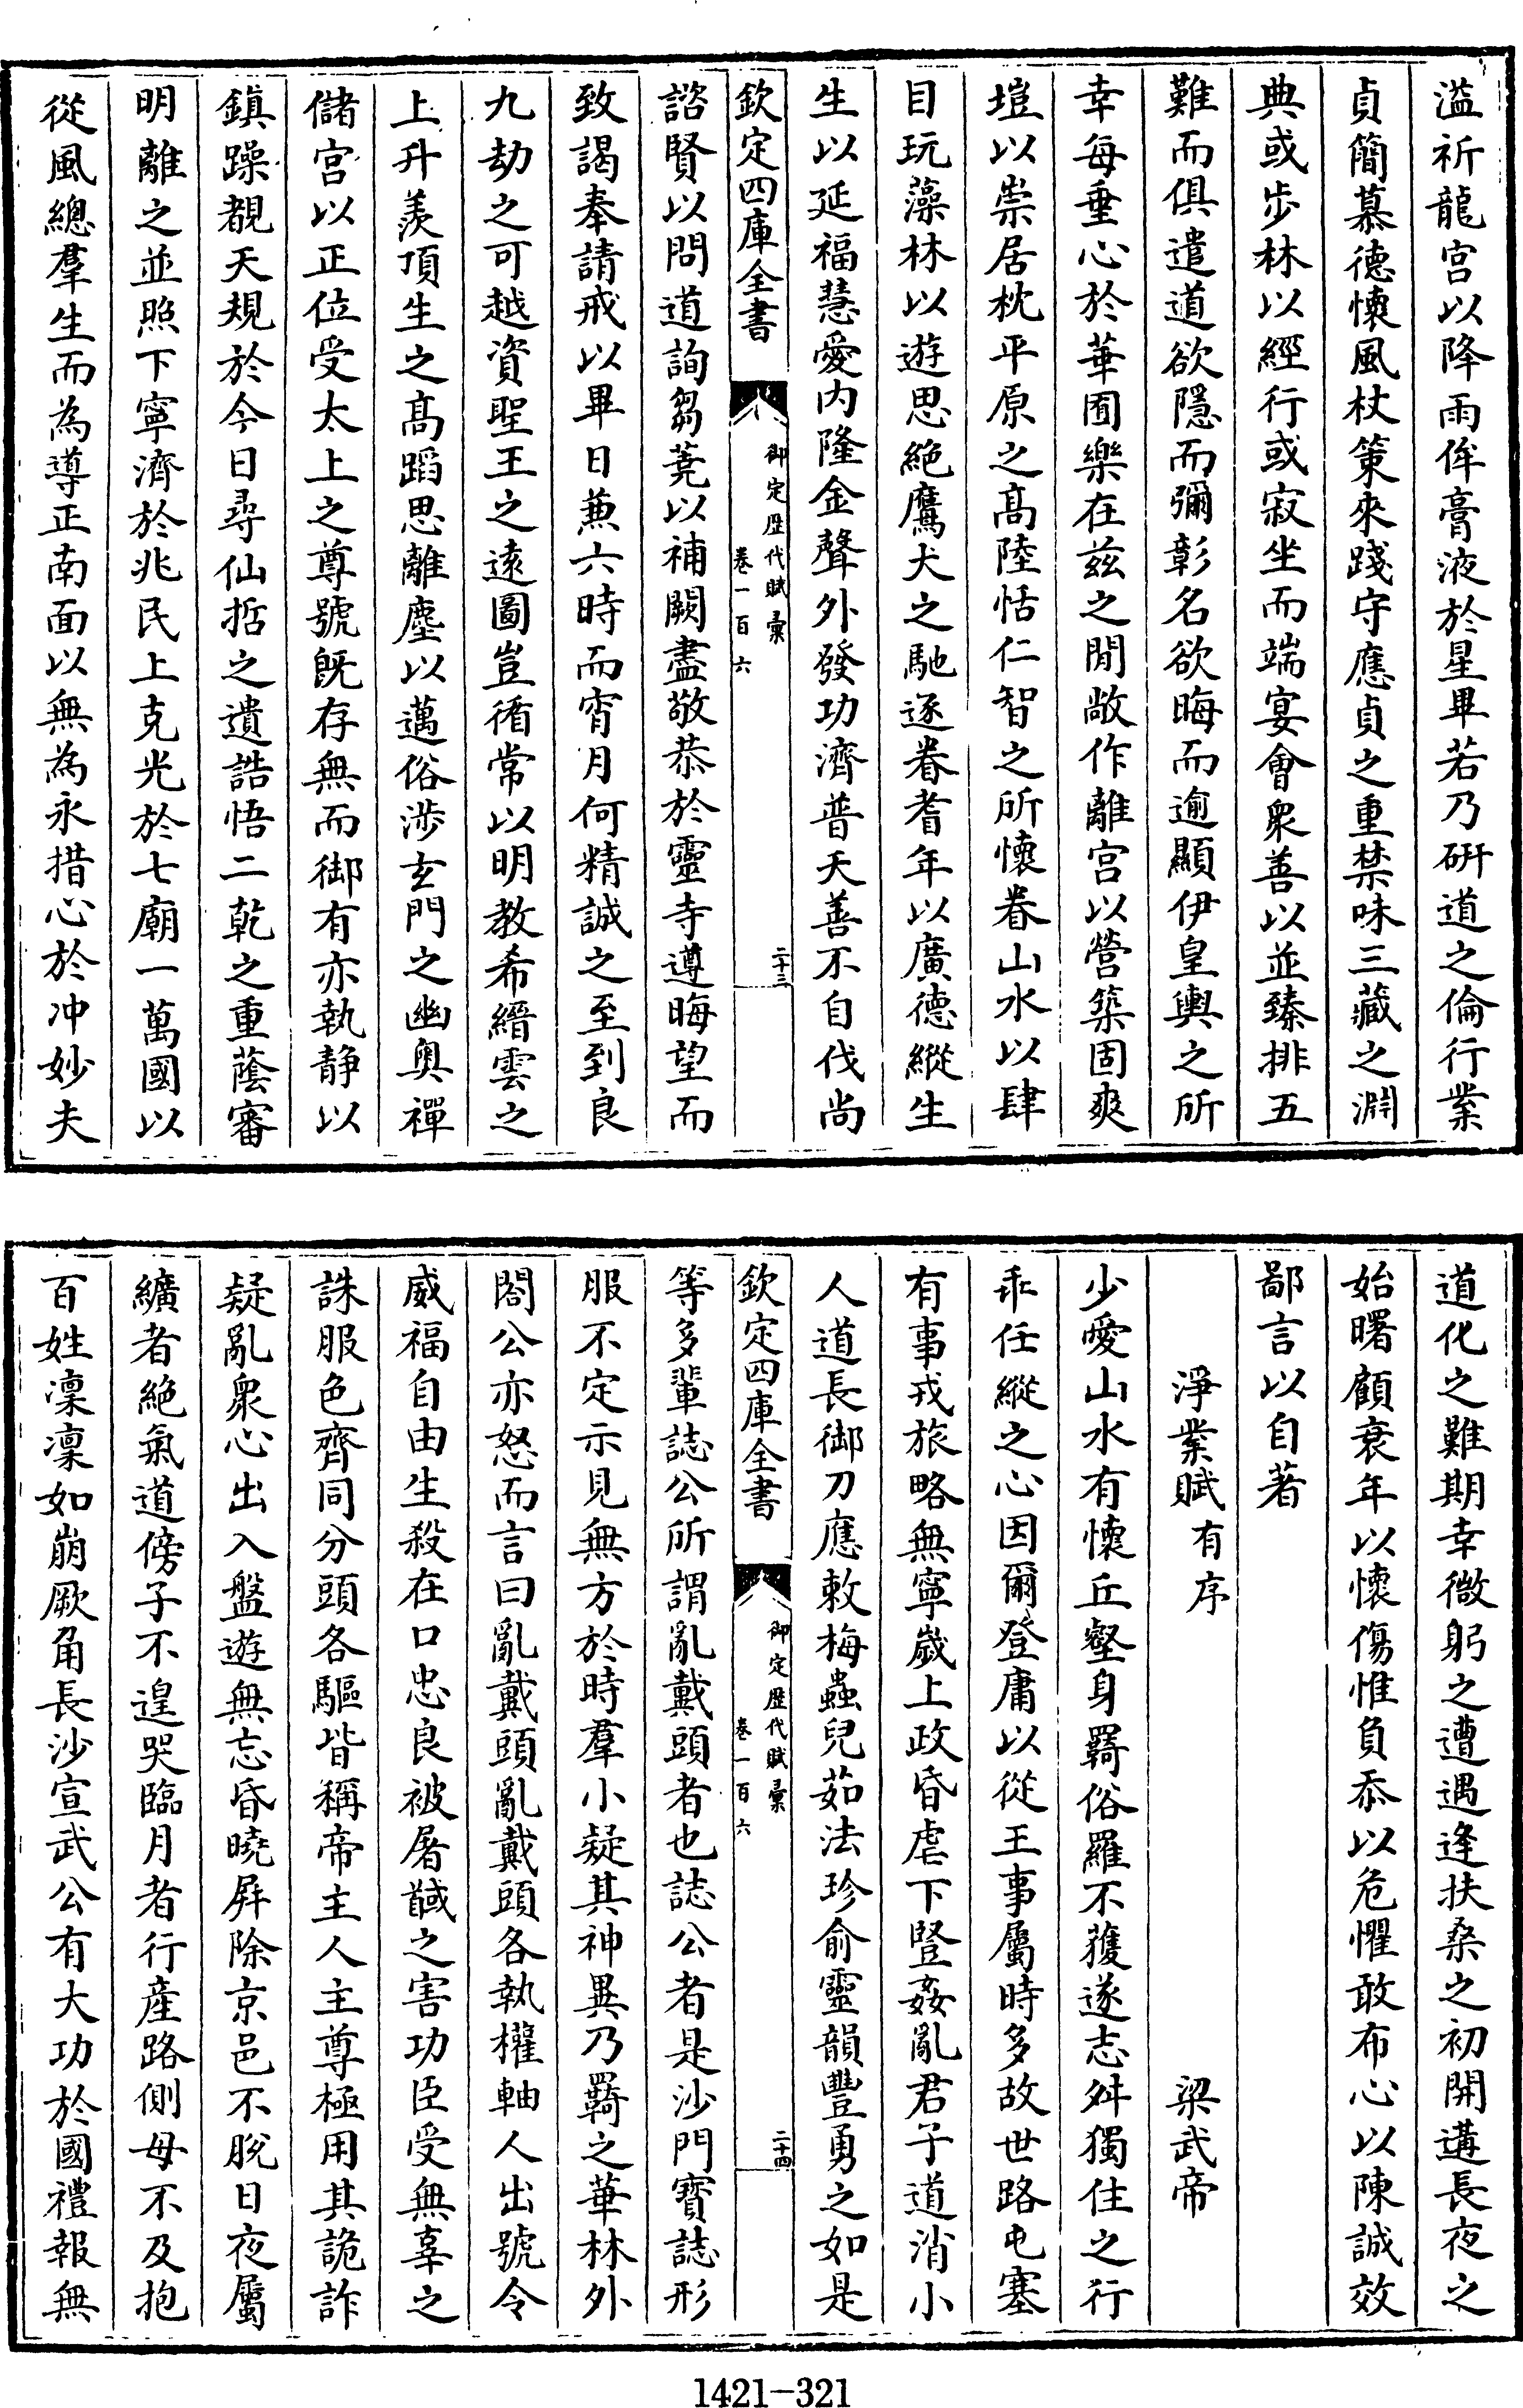 溢祈龍宮以降雨侔膏液於星畢若乃研道之倫行業
貞簡慕德懷風杖策來踐守應貞之重禁味三藏之淵
典或步林以經行或寂坐而端宴會衆善以並臻排五
難而俱遣道欲隱而彌彰名欲晦而逾顯伊皇輿之所
幸每垂心於華囿樂在兹之閒敞作離宮以營築固爽
塏以崇居枕平原之髙陸恬仁智之所懷眷山水以肆
目玩藻林以遊思絶鷹犬之馳逐眷耆年以廣德縱生
生以延福慧愛内隆金聲外發功濟普天善不自伐尚
欽定四庫全書
御定歴代賦彙
卷一百六
二十三
諮賢以問道詢芻蕘以補闕盡敬恭於靈寺遵晦望而
致謁奉請戒以畢日兼六時而宵月何精誠之至到良
九劫之可越資聖王之遠圖豈循常以明教希縉雲之
上升羨頂生之髙蹈思離塵以邁俗涉玄門之幽奥禪
儲宮以正位受太上之尊號既存無而御有亦執静以
鎮躁覩天規於今日尋仙哲之遺誥悟二乾之重蔭審
明離之並照下寧濟於兆民上克光於七廟一萬國以
從風總羣生而為導正南面以無為永措心於冲妙夫
道化之難期幸微躬之遭遇逢扶桑之初開遘長夜之
始曙顧衰年以懷傷惟負忝以危懼敢布心以陳誠效
鄙言以自著
淨業賦有序 梁武帝
少愛山水有懷丘壑身羇俗羅不獲遂志舛獨住之行
乖任縱之心因爾登庸以從王事屬時多故世路屯塞
有事戎旅略無寧嵗上政昏虐下豎姦亂君子道消小
人道長御刀應敕梅蟲兒茹法珍俞靈韻豐勇之如是
欽定四庫全書
御定歴代賦彙
卷一百六
二十四
等多輩誌公所謂亂戴頭者也誌公者是沙門寶誌形
服不定示見無方於時羣小疑其神異乃羇之華林外
閤公亦怒而言曰亂戴頭亂戴頭各執權軸人出號令
威福自由生殺在口忠良被屠馘之害功臣受無辜之
誅服色齊同分頭各驅皆稱帝主人主尊極用其詭詐
疑亂衆心出入盤遊無忘昏曉屏除京邑不脫日夜屬
纊者絶氣道傍子不遑哭臨月者行産路側母不及抱
百姓凜凜如崩厥角長沙宣武公有大功於國禮報無
1421-321